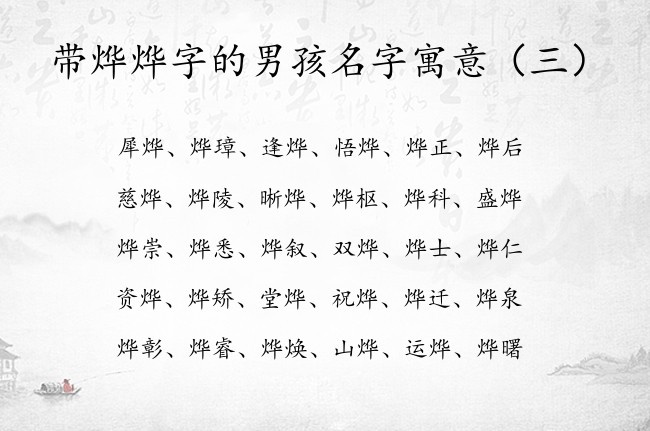 带烨烨字的男孩名字寓意（三）
犀烨、烨璋、逢烨、悟烨、烨正、烨后
慈烨、烨陵、晰烨、烨枢、烨科、盛烨
烨崇、烨悉、烨叙、双烨、烨士、烨仁
资烨、烨矫、堂烨、祝烨、烨迁、烨泉
烨彰、烨睿、烨焕、山烨、运烨、烨曙